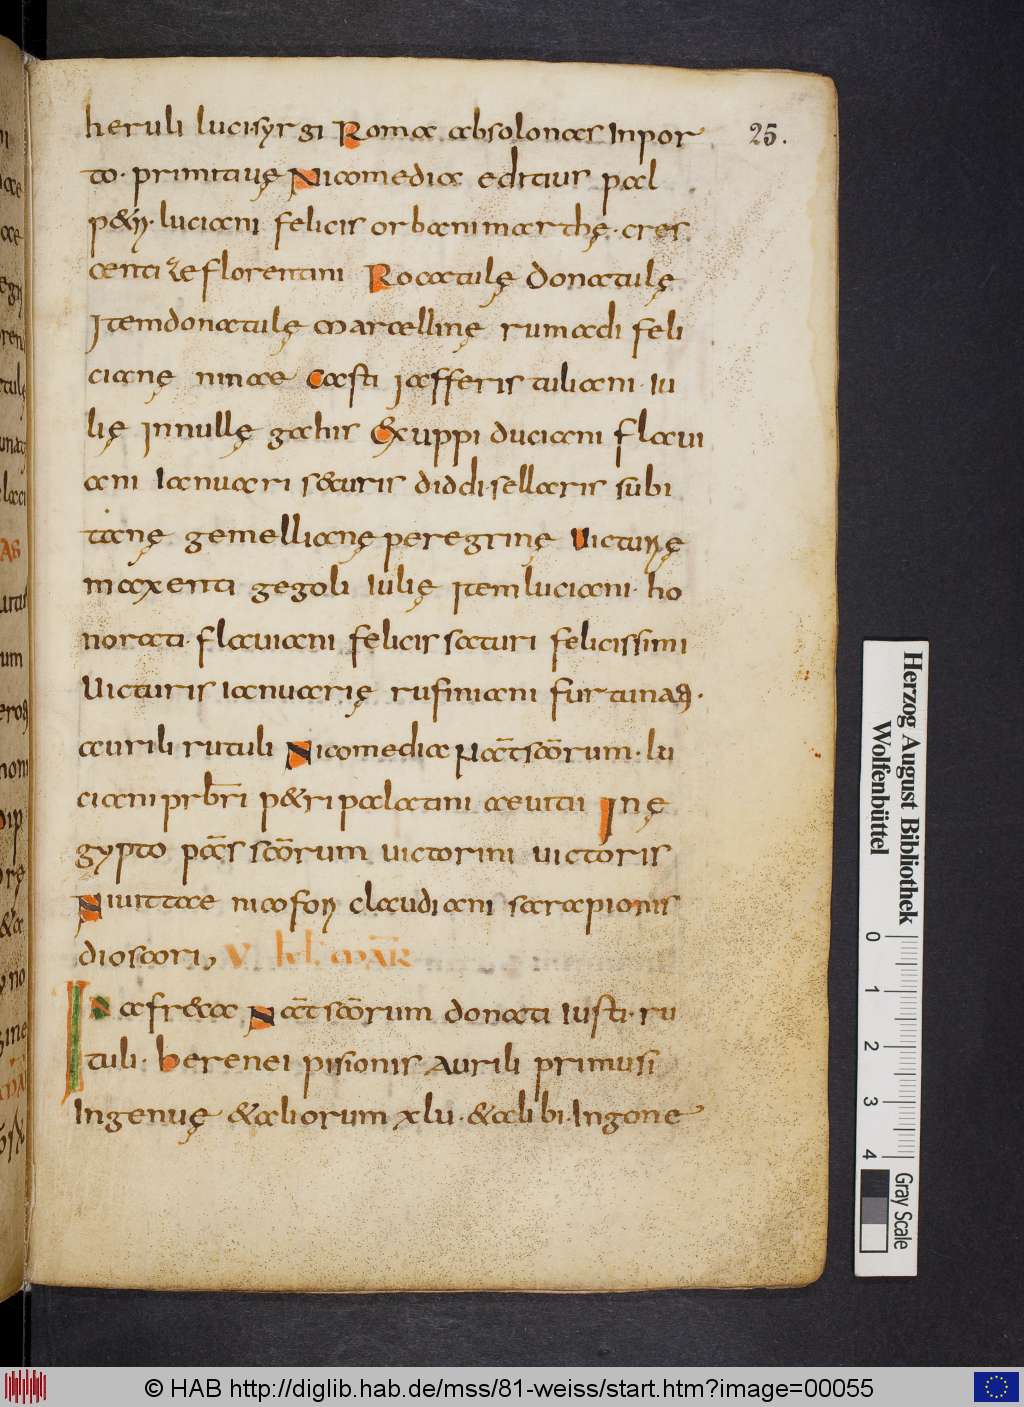 heruli lucisyrgi Romae absolonaes Inpor
25.
to· primitiuę Nicomediae editius pael
p&ri· luciani felicis orbani marthę· cres
centi Zeflorentini Rocatulę donatulę
Itemdonatulę marcellinę rumadi feli
cianę ninae casti Iafferis tuliani· Iu
lię Innullę gahis Exuppi duciani flaui
ani Ianuari s&uris diddi· sellaris subi
tanę gemellianę peregrinę Uicturę
maxenti gegoli Iulię Itemluciani· ho
norati· flauiani felicis saturi felicissimi
Uicturis Ianuarię rufiniani furtunaę·
aurili rutuli Nicomedia Natscōrum· lu
ciani prb̄ri p&ri palatini aeuitii Inę
gypto pas̄s scōrum uictorini uictoris
Niuittae nicofori claudiani sarapionis
dioscori, V kl̄ mār
IN afr&ca Nat̄ scōrum donati Iusti· ru
tuli· berenei pisionis Aurili primusi
Ingenuę &aliorum xlu· &alibi· Ingone
Herzog August Bibliothek
Wolfenbüttel
0 1 2 3 4
Gray Scale
© HAB http://diglib.hab.de/mss/81-weiss/start.htm?image=00055